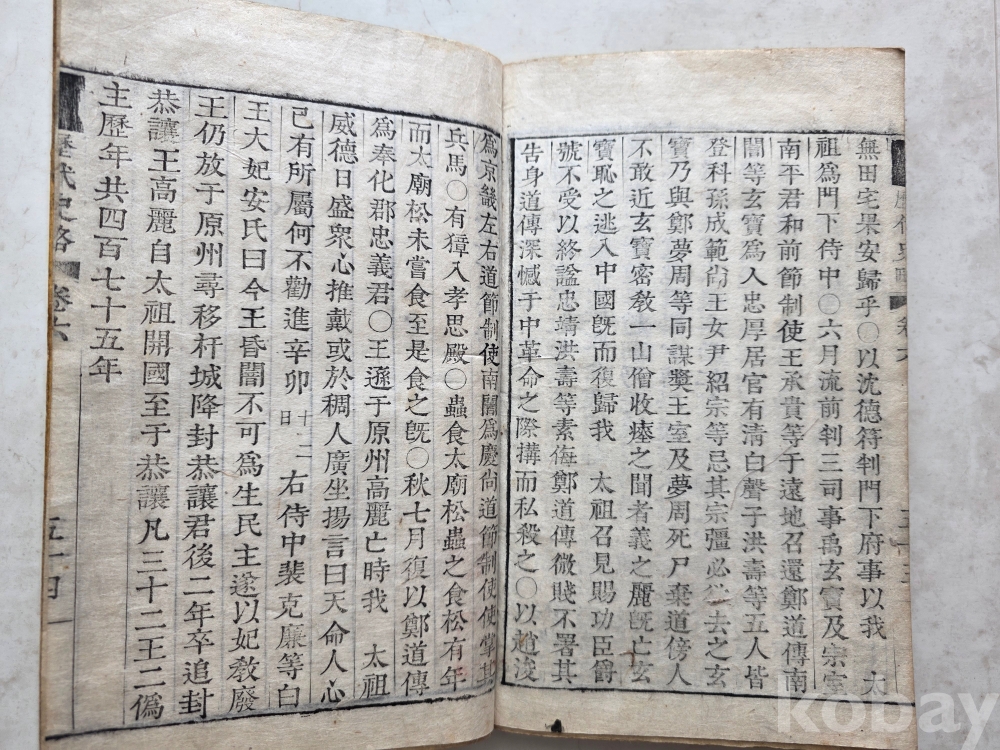 無田宅果安歸乎○以沈德符判門下府事以我 太
祖爲門下侍中○六月流前判三司事禹玄寶及宗室
南平君和前節制使王承貴等于遠地召還鄭道傳南
誾等玄寶爲人忠厚居官有清白聲子洪壽等五人皆
登科孫成範尙王女尹紹宗等忌其宗彊必欲去之玄
寶乃與鄭夢周等同謀奬王室及夢周死尸棄道傍人
不敢近玄寶密敎一山僧收瘞之聞者義之麗旣亡玄
寶恥之逃入中國旣而復歸我 太祖召見賜功臣爵
號不受以終謚忠靖洪壽等素侮鄭道傳微賤不署其
告身道傳深憾于中革命之際搆而私殺之○以趙浚
爲京畿左右道節制使南誾爲慶尙道節制使使掌其
兵馬○有獐入孝思殿○蟲食太廟松蟲之食松有年
而太廟松未嘗食至是食之旣○秋七月復以鄭道傳
爲奉化郡忠義君○王遜于原州高麗亡時我 太祖
威德日盛衆心推戴或於稠人廣坐揚言曰天命人心
已有所屬何不勸進辛卯十二日右侍中裴克廉等白
王大妃安氏曰今王昏闇不可爲生民主遂以妃敎廢
王仍放于原州尋移杆城降封恭讓君後二年卒追封
恭讓王高麗自太祖開國至于恭讓凡三十二王二僞
主歷年共四百七十五年
歷代史略 卷六 五十四
kobay